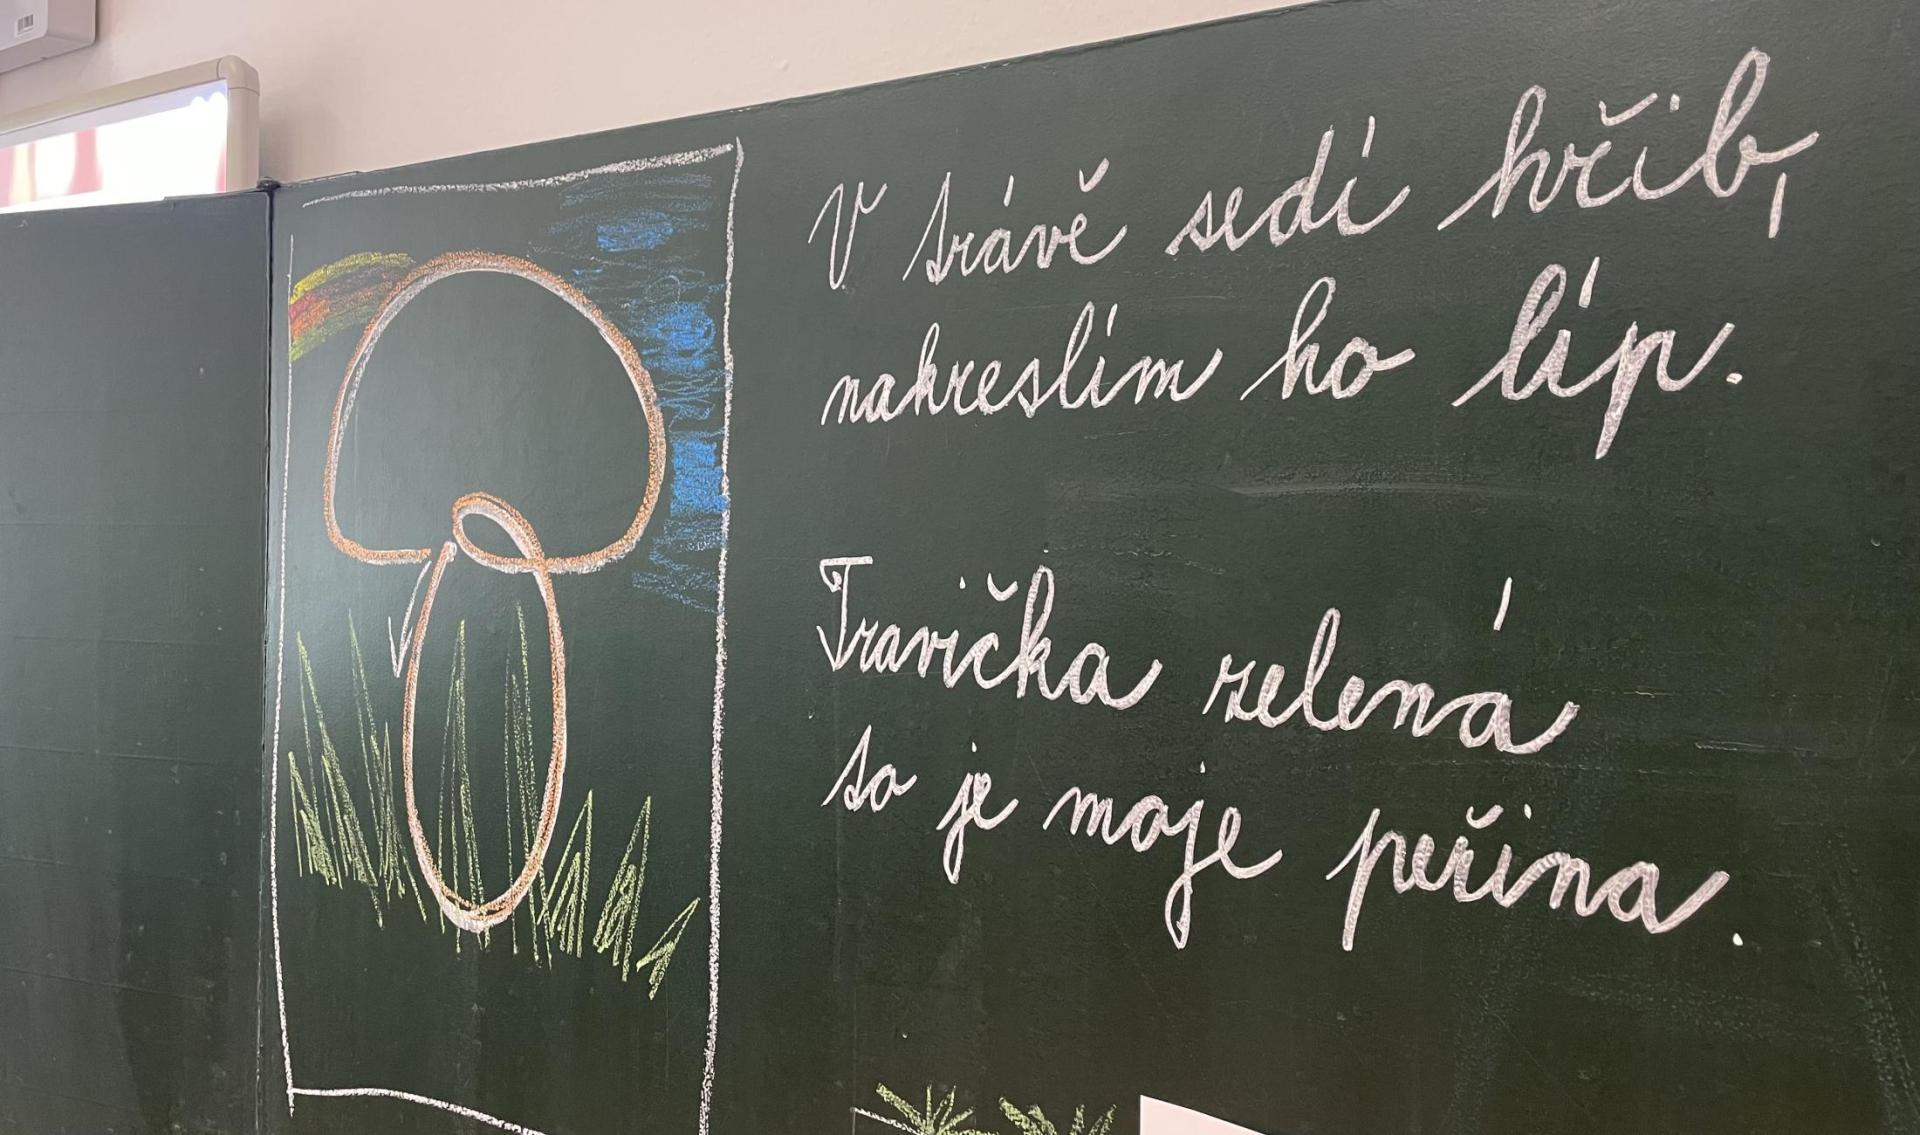 V trávě sedí hřib,
nakreslím ho líp.
Travička zelená
to je moje peřina.